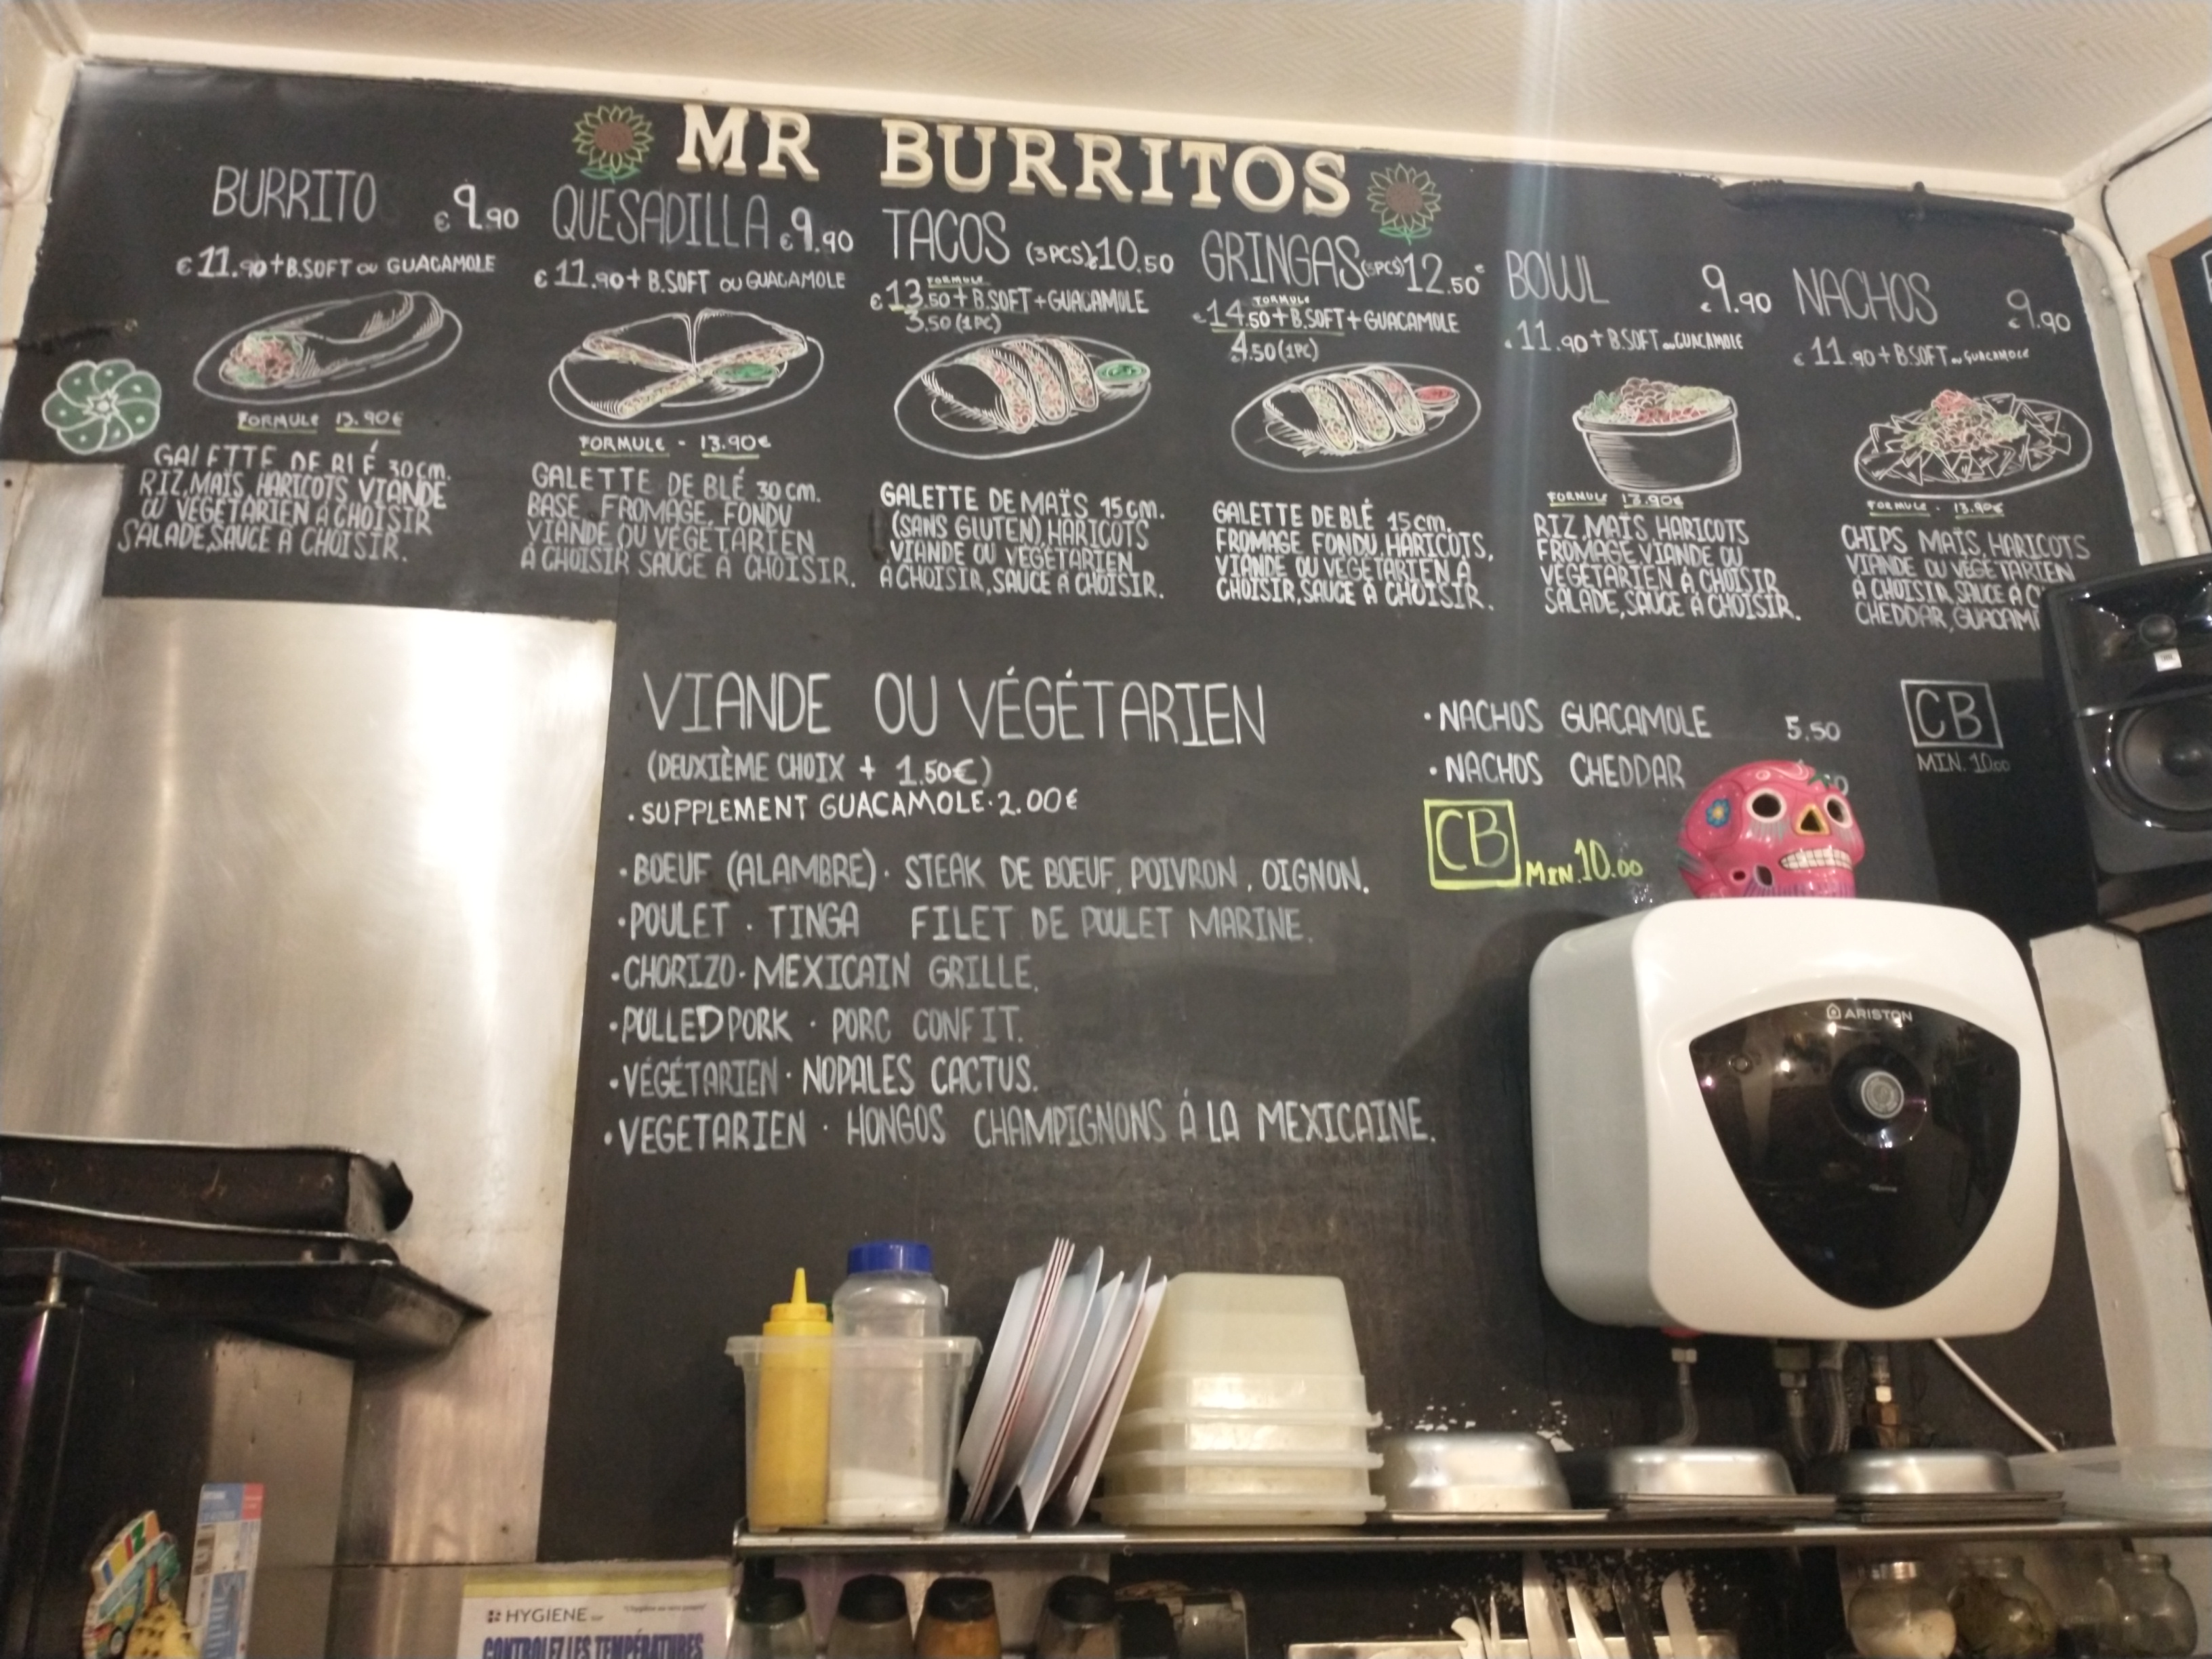 MR BURRITOS
BURRITO €9.90
€11.90 + B.SOFT OU GUACAMOLE
FORMULE 13.90€
GALETTE DE BLÉ 30cm.
RIZ, MAÏS, HARICOTS, VIANDE
OU VÉGÉTARIEN A CHOISIR
SALADE, SAUCE A CHOISIR.
QUESADILLA €9.90
€11.90 + B.SOFT OU GUACAMOLE
FORMULE - 13.90€
GALETTE DE BLÉ 30cm.
BASE, FROMAGE, FONDU
VIANDE OU VEGETARIEN
A CHOISIR SAUCE A CHOISIR.
TACOS (3PCS) €10.50
FORMULE
€13.50 + B.SOFT + GUACAMOLE
3.50 (1PC)
GALETTE DE MAÏS 15cm.
(SANS GLUTEN), HARICOTS
VIANDE OU VEGETARIEN
A CHOISIR, SAUCE A CHOISIR.
GRINGAS (3PCS) 12.50€
FORMULE
€14.50 + B.SOFT + GUACAMOLE
4.50 (1PC)
GALETTE DE BLÉ 15cm.
FROMAGE FONDU, HARICOTS,
VIANDE OU VEGETARIEN A
CHOISIR, SAUCE A CHOISIR.
BOWL €9.90
€11.90 + B.SOFT ou GUACAMOLE
FORMULE 13.90€
RIZ, MAÏS, HARICOTS
FROMAGE, VIANDE OU
VEGETARIEN A CHOISIR
SALADE, SAUCE A CHOISIR.
NACHOS €9.90
€11.90 + B.SOFT ou GUACAMOLE
FORMULE - 13.90€
CHIPS MAÏS, HARICOTS
VIANDE OU VEGETARIEN
A CHOISIR, SAUCE A
CHEDDAR,
VIANDE OU VÉGÉTARIEN
(DEUXIÈME CHOIX + 1.50€)
• SUPPLEMENT GUACAMOLE • 2.00€
• BOEUF (ALAMBRE) • STEAK DE BOEUF, POIVRON, OIGNON.
• POULET • TINGA FILET DE POULET MARINE.
• CHORIZO • MEXICAIN GRILLE.
• PULLED PORK • PORC CONFIT.
• VÉGÉTARIEN • NOPALES CACTUS.
• VEGETARIEN • HONGOS CHAMPIGNONS Á LA MEXICAINE.
• NACHOS GUACAMOLE 5.50
• NACHOS CHEDDAR
CB
MIN. 10.00
CB MIN. 10.00
ARISTON
HYGIENE
CONTROLEZ LES TEMPÉRATURES